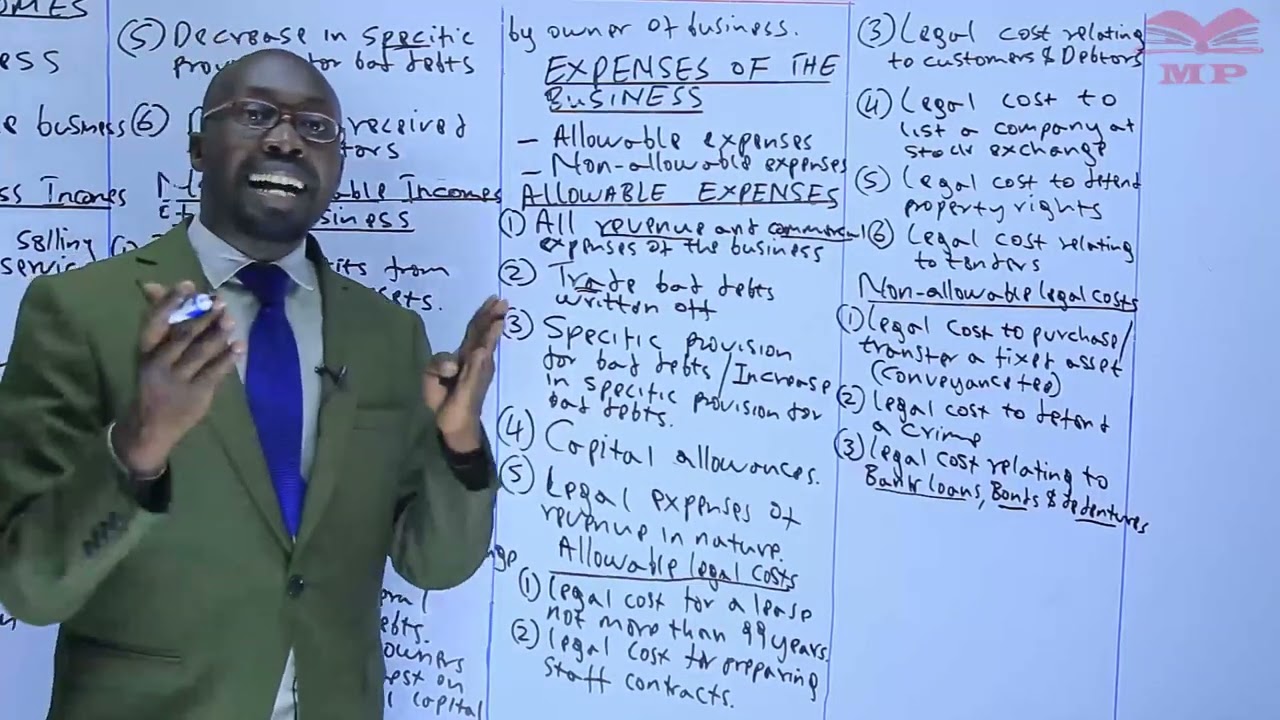 OMES
ess
e business
ss Incomes
selling
service
(5) Decrease in specific
for bad debts
(6)
received
tors
able Incomes
business
its from
sets.
ebts.
owners
est on
capital
by owner of business.
EXPENSES OF THE
BUSINESS
- Allowable expenses
- Non-allowable expenses
ALLOWABLE EXPENSES
(1) All revenue and commercial
expenses of the business
(2) Trade bad debts
written off
(3) Specific provision
for bad debts/Increase
in specific provision for
bad debts.
(4) Capital allowances.
(5) Legal expenses of
revenue in nature.
Allowable legal costs
(1) legal cost for a lease
not more than 99 years.
(2) legal cost for preparing
staff contracts.
(3) Legal cost relating
to customers & Debtors
(4) Legal cost to
list a company at
stock exchange
(5) Legal cost to defend
property rights
(6) Legal cost relating
to tenders
Non-allowable legal costs
(1) legal cost to purchase/
transfer a fixed asset
(conveyance fee)
(2) legal cost to defend
a crime
(3) legal cost relating to
Bank loans, Bonds & debentures
MP